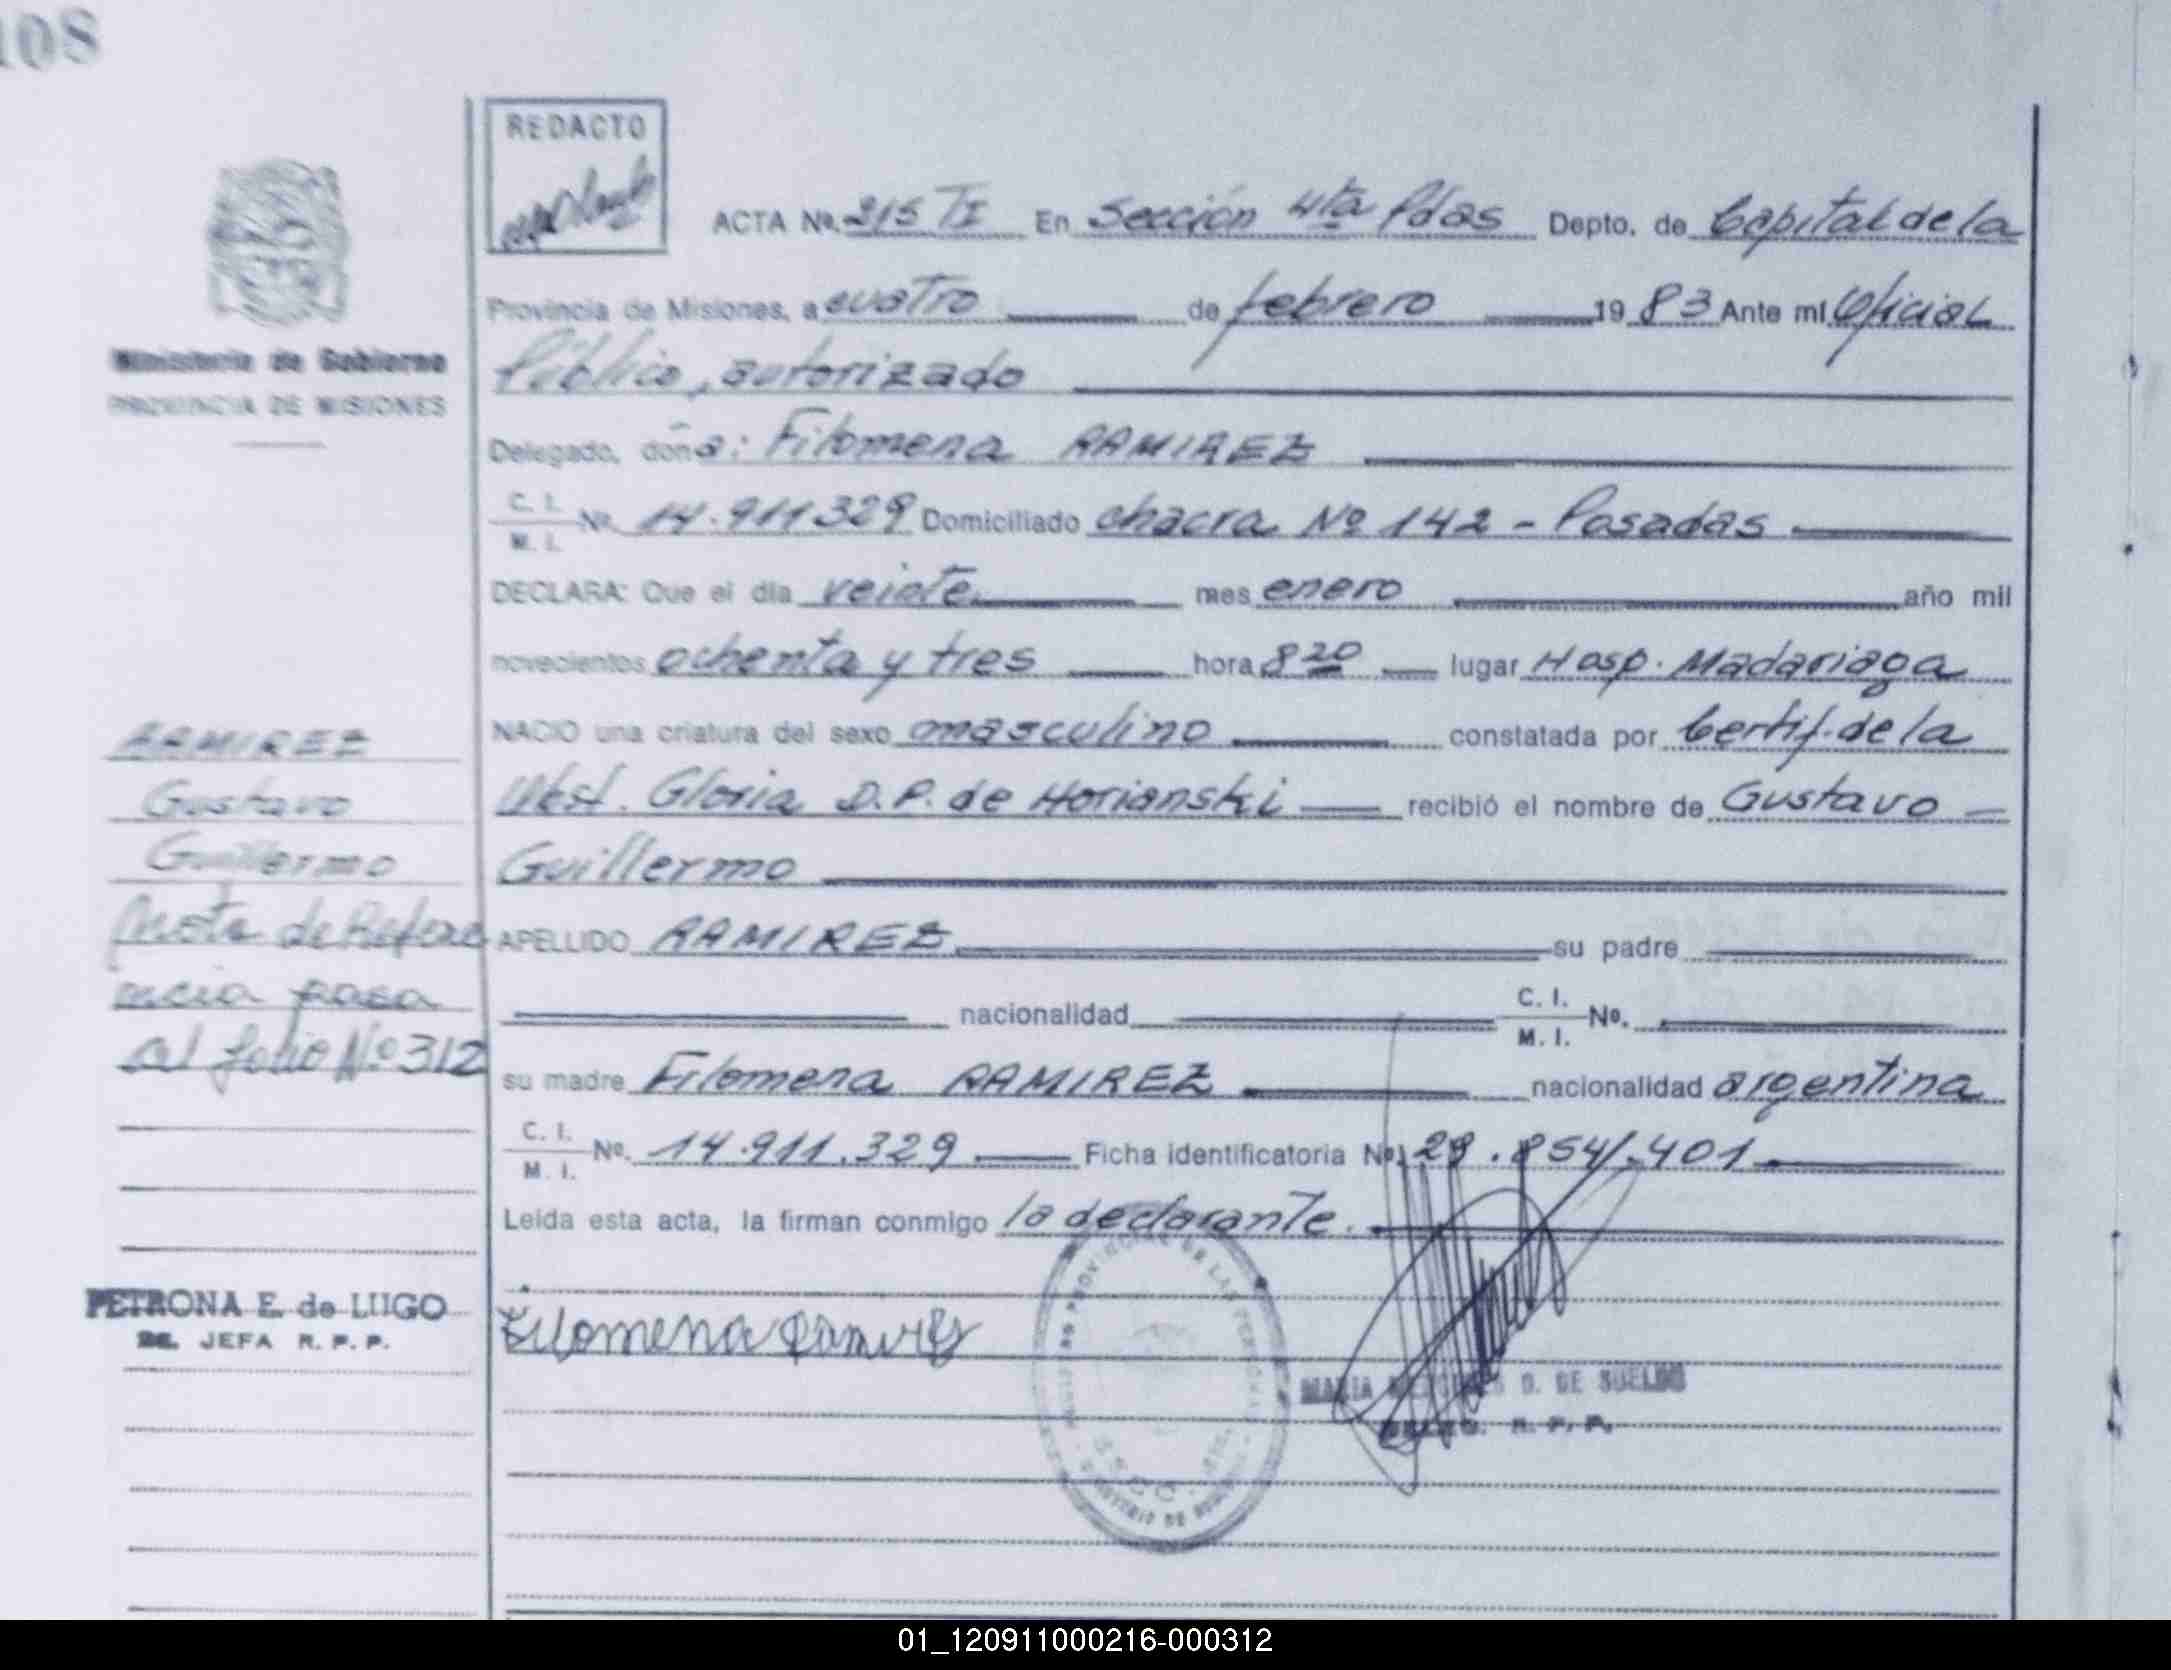 108
REDACTO
ACTA Nº. 215 TI En Sección 4ta Pdas Depto. de Capital de la
Provincia de Misiones, a cuatro de febrero 19 83 Ante mí Oficial
Ministerio de Gobierno
PROVINCIA DE MISIONES
Público, autorizado
Delegado, doña: Filomena RAMIREZ
C. I.
M. I. Nº. 14.911329 Domiciliado chacra Nº 142 - Posadas
DECLARA: Que el día veinte mes enero año mil
novecientos ochenta y tres hora 8 20 lugar Hosp. Madariaga
NACIO una criatura del sexo masculino constatada por Certif. de la
Obst. Gloria D.P. de Horianski recibió el nombre de Gustavo
Guillermo
APELLIDO RAMIREZ su padre
nacionalidad C. I.
M. I. Nº.
su madre Filomena RAMIREZ nacionalidad argentina
C. I.
M. I. Nº. 14.911.329 Ficha identificatoria Nº 29.854.401
Leída esta acta, la firman conmigo la declarante.
Filomena Ramirez
RAMIREZ
Gustavo
Guillermo
Nota de Refere
ncia pasa
al folio Nº 312
PETRONA E. de LUGO
JEFA R. P. P.
MARIA D. DE SUELDO
R. P. P.
01_120911000216-000312